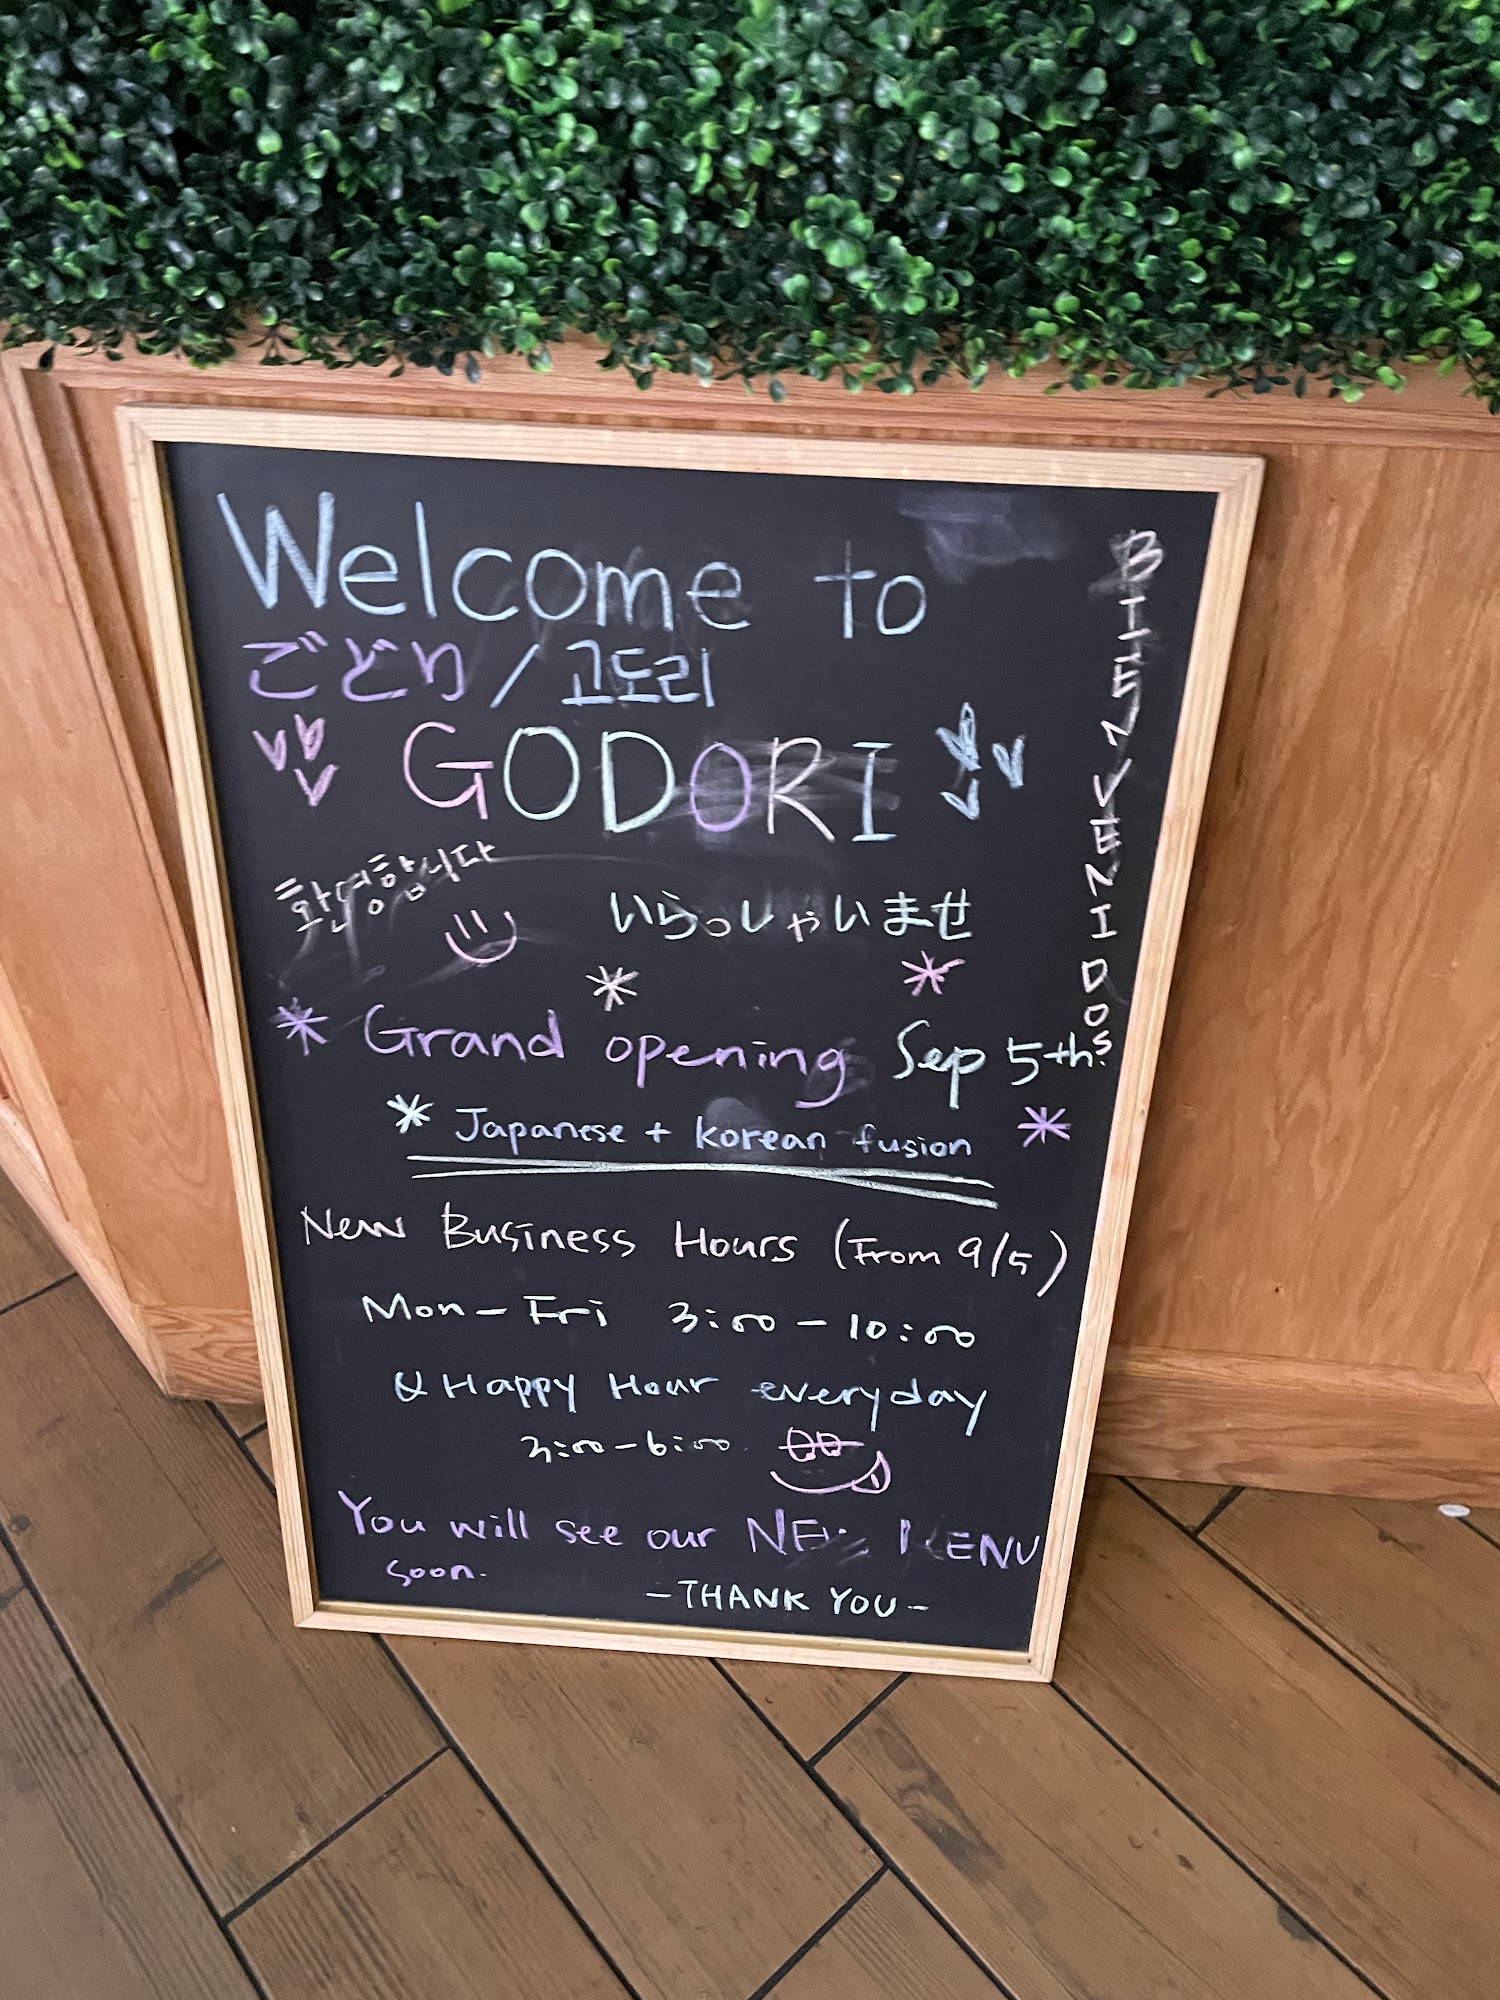 Welcome to
ごどり/고도리
GODORI
환영합니다
いらっしゃいませ
Grand opening Sep 5th.
Japanese + korean fusion
New Business Hours (From 9/5)
Mon - Fri 3:00 - 10:00
& Happy Hour everyday
3:00 - 6:00
You will see our NEW MENU
soon.
- THANK YOU -
BIENVENIDOS